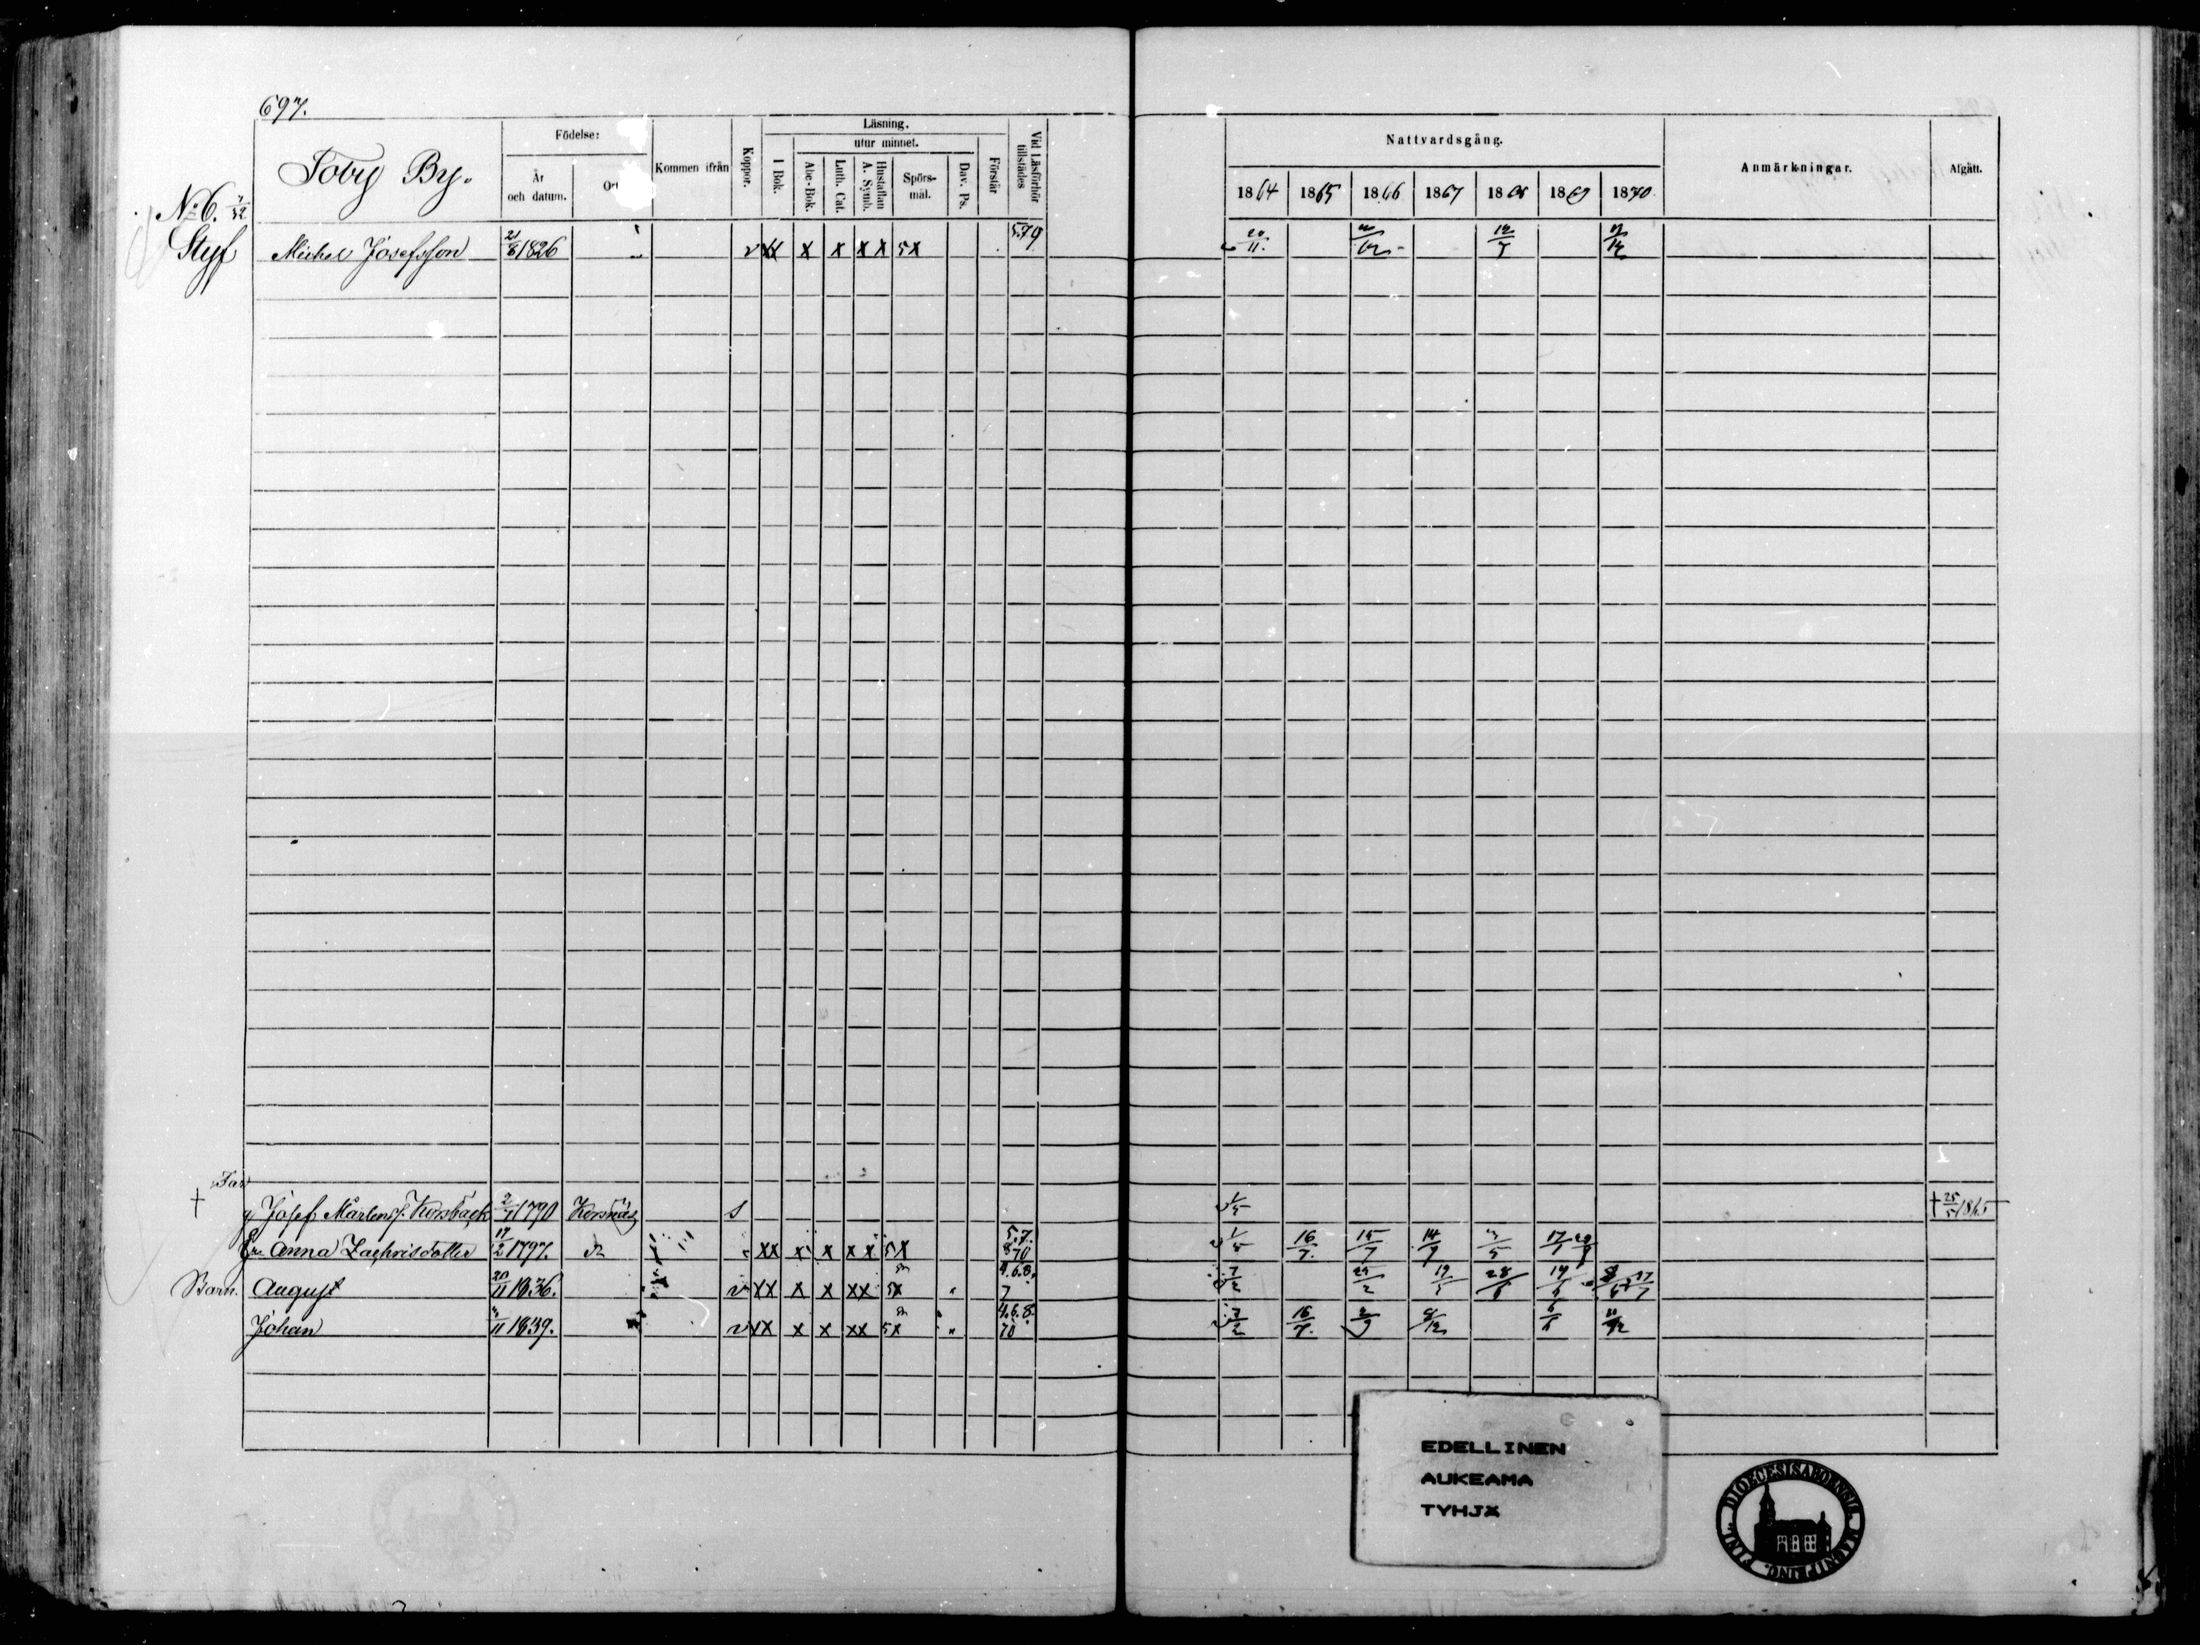 697.
Toby By.
Födelse:
År och datum.
Ort
Kommen ifrån
Koppor.
Läsning.
I Bok.
utur minnet.
Abc-Bok.
Luth. Cat.
Hustaflan A. Symb.
Spörsmål.
Dav. Ps.
Förstår
Vid Läsförhör tillstädes
Nattvardsgång.
1864 1865 1866 1867 1868 1869 1870
Anmärkningar.
Afgått.
No 6.
Styf Michel Josefsson 21/8 1826 v XX X X X X 5X 5.7 9 20/11. 12/7
Far
† Josef Mårtenss. Korsbäck 2/1 1790 Korsnäs s 1/5 † 25/5 1865
Anna Zachrisdotter 17/2 1797. XX X X X X 5X 5.7. 870 1/5 16/7. 15/7 14/9
Barn. August 20/11 1836. v XX X X XX 5X 4.6.8. 7 7/2 29/2 19/5 28/6 19/6
Johan 1839. v XX X X XX 5X 4.6.8. 70 7/2 16/7. 8/12 6/6
EDELLINEN
AUKEAMA
TYHJÄ